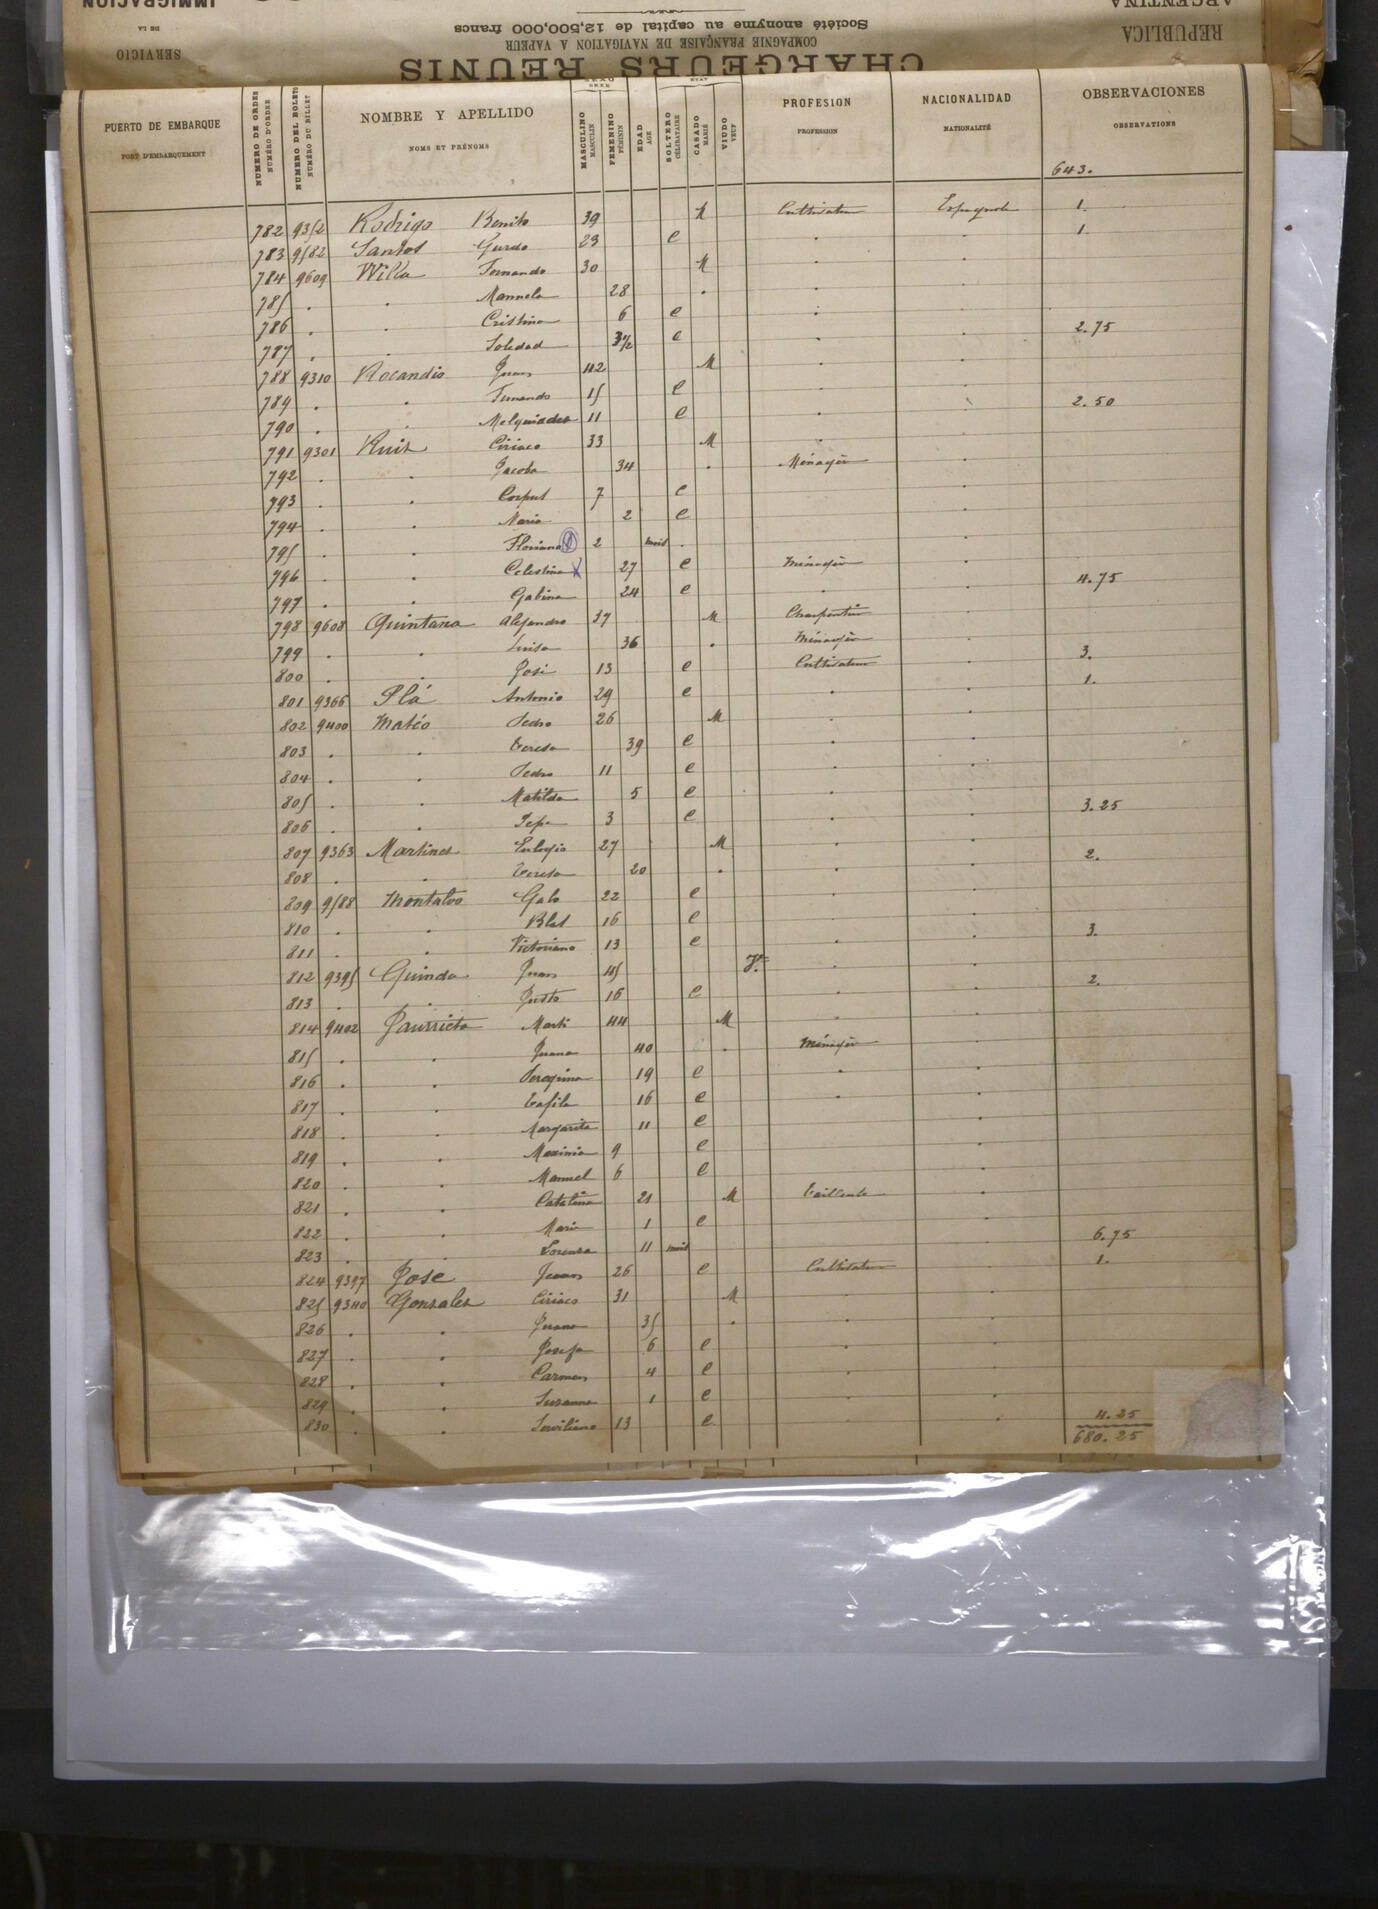 SERVICIO
DE LA
IMMIGRACION
CHARGEURS REUNIS
COMPAGNIE FRANÇAISE DE NAVIGATION A VAPEUR
Société anonyme au capital de 12,500,000 francs
REPUBLICA
ARGENTINA
PUERTO DE EMBARQUE
PORT D'EMBARQUEMENT
NUMERO DE ORDEN
NUMÉRO D'ORDRE
NUMERO DEL BOLETO
NUMÉRO DU BILLET
NOMBRE Y APELLIDO
NOMS ET PRÉNOMS
MASCULINO
MASCULIN
FEMENINO
FÉMININ
EDAD
AGE
SOLTERO
CÉLIBATAIRE
CASADO
MARIÉ
VIUDO
VEUF
PROFESION
PROFESSION
NACIONALIDAD
NATIONALITÉ
OBSERVACIONES
OBSERVATIONS
643.
782 9352 Rodrigo Benito 39 M Cultivateur Espagnole 1.
783 9582 Santos 23 C . . 1.
784 9609 Willa Fernando 30 M . .
785 . . Manuela 28 . . .
786 . . Cristina 6 C . .
787 . . Soledad 3 1/2 C . . 2.75
788 9310 Rocandio Juan 42 M . .
789 . . Fernando 15 C . .
790 . . Melquiades 11 C . . 2.50
791 9301 Ruiz Ciriaco 33 M . .
792 . . Jacoba 34 . Ménagère .
793 . . Corpus 7 C .
794 . . Maria 2 C .
795 . . Floriano 2 mois . .
796 . . Celestina X 27 C Ménagère .
797 . . Gabina 24 C . . 4.75
798 9608 Quintana Alejandro 37 M Charpentier .
799 . . Luisa 36 . Ménagère .
800 . . José 13 C Cultivateur . 3.
801 9366 Plá Antonio 29 C . . 1.
802 9400 Matéo Pedro 26 M . .
803 . . Teresa 39 C . .
804 . . Pedro 11 C . .
805 . . Matilda 5 C . .
806 . . Pepe 3 C . . 3.25
807 9363 Martinez Eulogio 27 M . .
808 . . Teresa 20 . . . 2.
809 9588 Montalvo Galo 22 C . .
810 . . Blas 16 C . .
811 . . Victoriano 13 C . . 3.
812 9395 Guinda Juan 45 V. . .
813 . . Justo 16 C . . 2.
814 9402 Jaurrieta Marti 44 M . .
815 . . Juana 40 . Ménagère .
816 . . Peregrina 19 C . .
817 . . 16 C . .
818 . . Margarita 11 C .
819 . . 9 C .
820 . . Manuel 6 C .
821 . . Catalina 21 M .
822 . . Maria 1 C .
823 . . Lorenza 11 mois 6.75
824 9397 Jose Juan 26 C Cultivateur . 1.
825 9340 Gonzalez Ciriaco 31 M . .
826 . . Juana 35 . . .
827 . . Josefa 6 C . .
828 . . Carmen 4 C . .
829 . . Suzanna 1 C . .
830 . . Serviliano 13 C . . 4.25
680.25